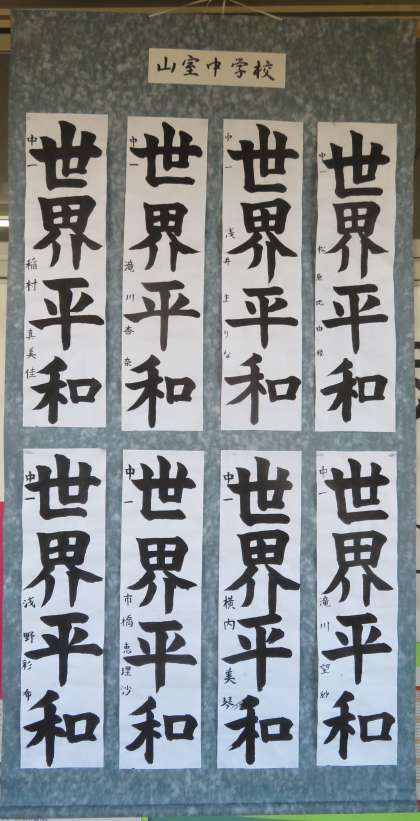 山室中学校
世界平和
中一
世界平和
中一 浅井まりな
世界平和
中一 滝川杏奈
世界平和
中一 稲村真美佳
世界平和
中一 滝川望紗
世界平和
中一 横内美琴
世界平和
中一 市橋恵理沙
世界平和
中一 浅野彩布